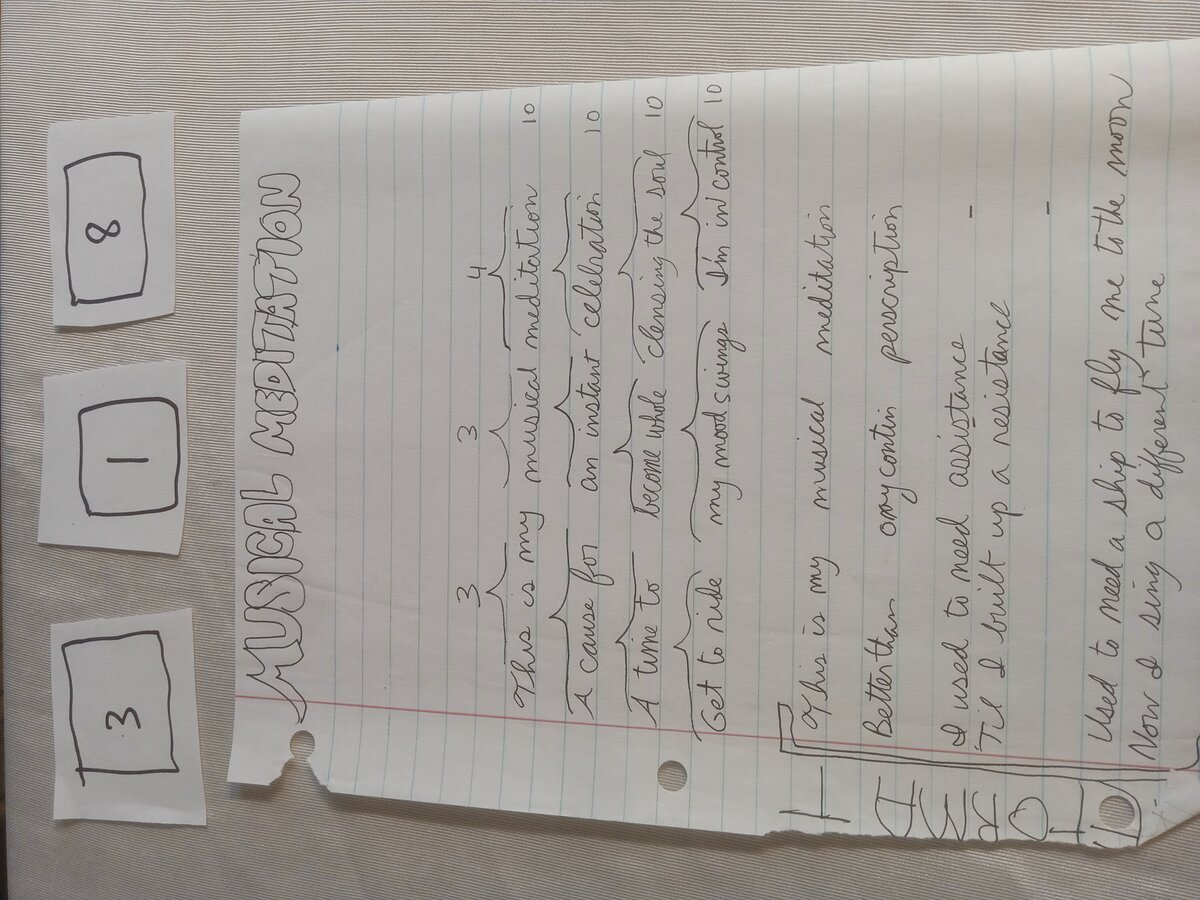 3 1 8
MUSICAL MEDITATION
3 3 4
This is my musical meditation 10
A cause for an instant celebration 10
A time to become whole clensing the soul 10
Get to ride my mood swings I'm in control 10
This is my musical meditation
Better than oxycontin perscription
I used to need assistance -
'Til I built up a resistance
-
Used to need a ship to fly me to the moon
Now I sing a different tune